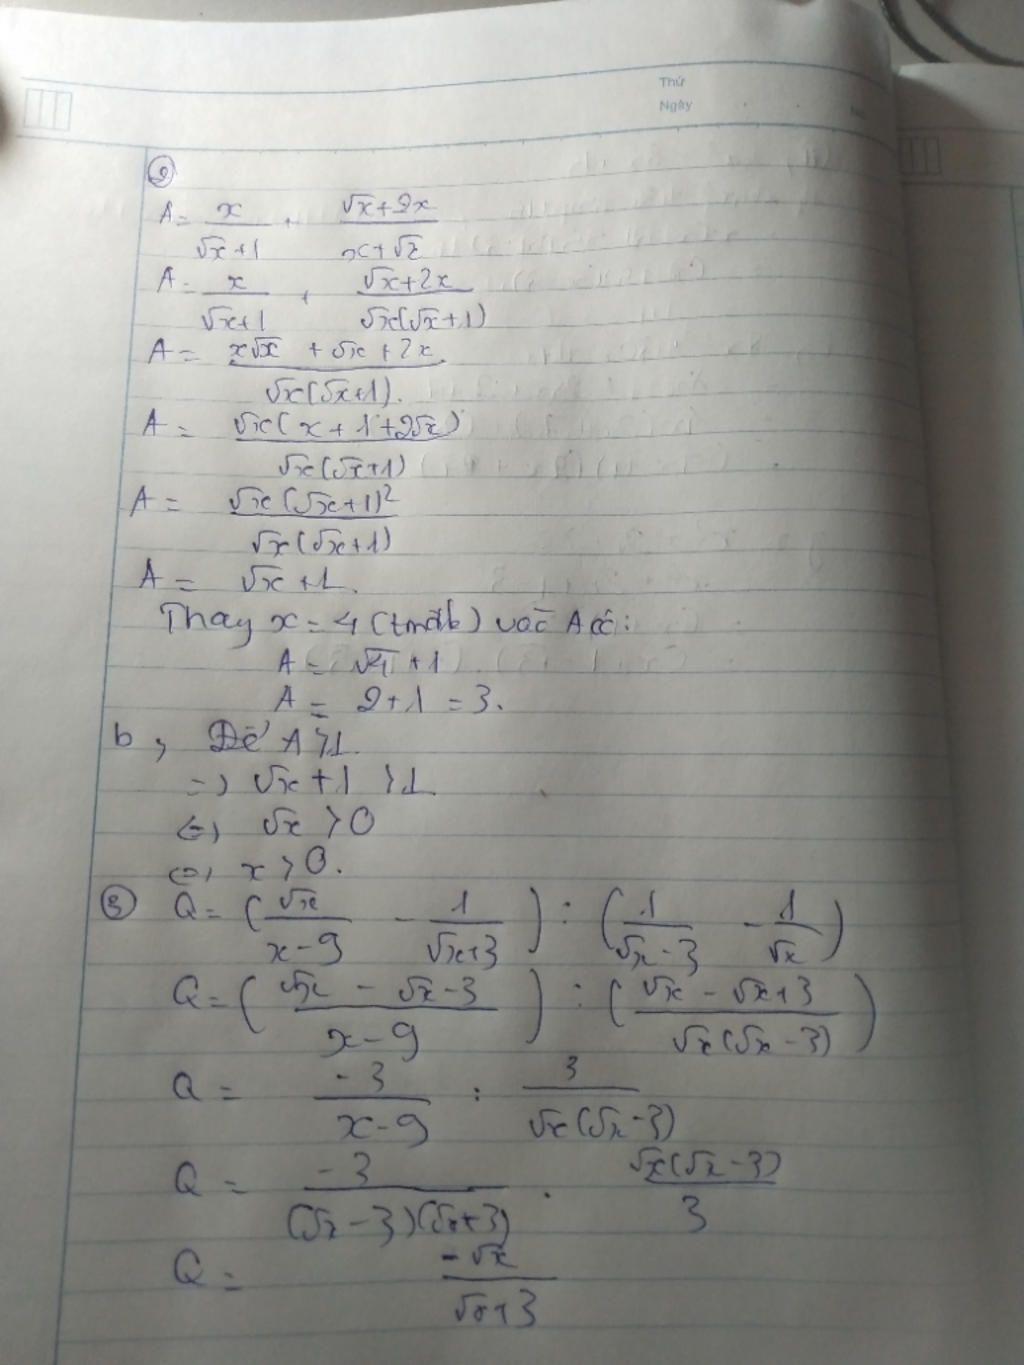 Thứ
Ngày
②
A = x/(√x+1) + (√x+2x)/(x+√x)
A = x/(√x+1) + (√x+2x)/(√x(√x+1))
A = (x√x + √x + 2x)/(√x(√x+1)).
A = √x(x+1+2√x)/(√x(√x+1))
A = √x(√x+1)²/(√x(√x+1))
A = √x+1.
Thay x=4 (tmđk) vào A có:
A = √4+1
A = 2+1 = 3.
b, Để A>1.
=> √x+1 >1.
<=> √x >0
<=> x>0.
③ Q = (√x/(x-9) - 1/(√x+3)) : (1/(√x-3) - 1/√x)
Q = ((√x - √x-3)/(x-9)) : ((√x - √x+3)/(√x(√x-3)))
Q = -3/(x-9) : 3/(√x(√x-3))
Q = -3/((√x-3)(√x+3)) . √x(√x-3)/3
Q = -√x/(√x+3)